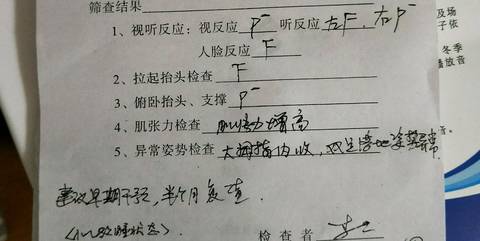 筛查结果
1、视听反应：视反应 P⁻ 听反应 左F，右P⁻
人脸反应 F
2、拉起抬头检查 F
3、俯卧抬头、支撑 P⁻
4、肌张力检查 肌张力增高
5、异常姿势检查 大拇指内收，双足落地姿势异常
建议早期干预，半个月复查.
检查者
及场
子依
冬季
播放音
音。